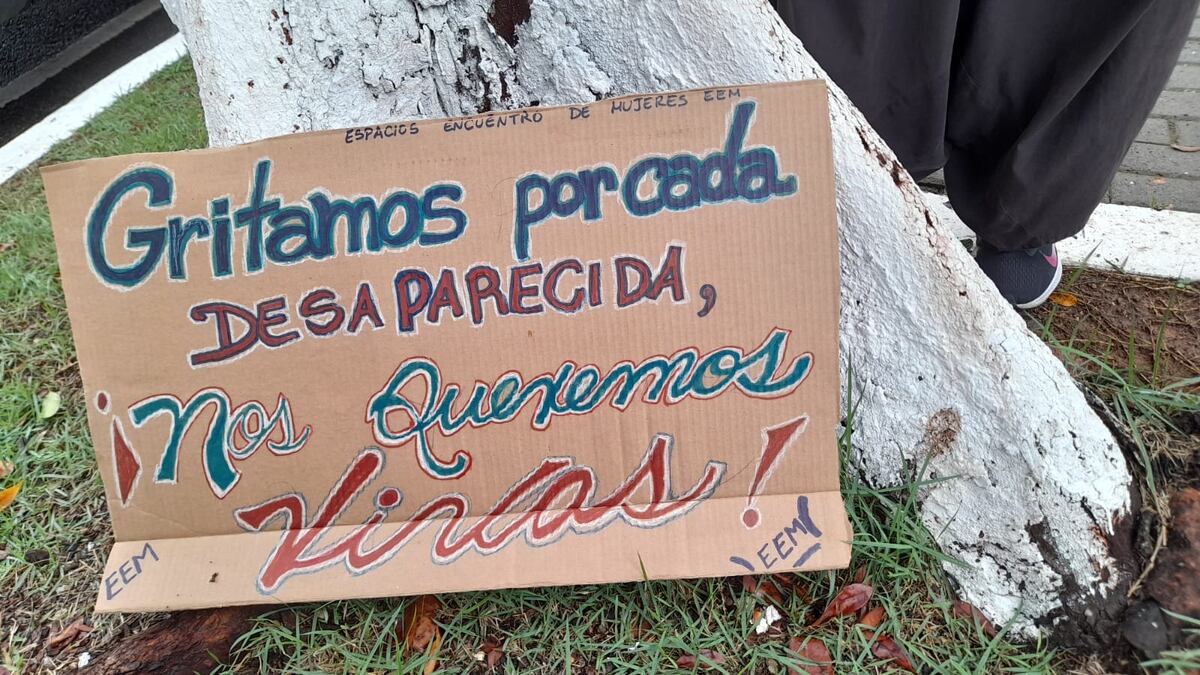 ESPACIOS ENCUENTRO DE MUJERES EEM
Gritamos por cada
DESAPARECIDA,
¡Nos Queremos
Vivas!
EEM
EEM